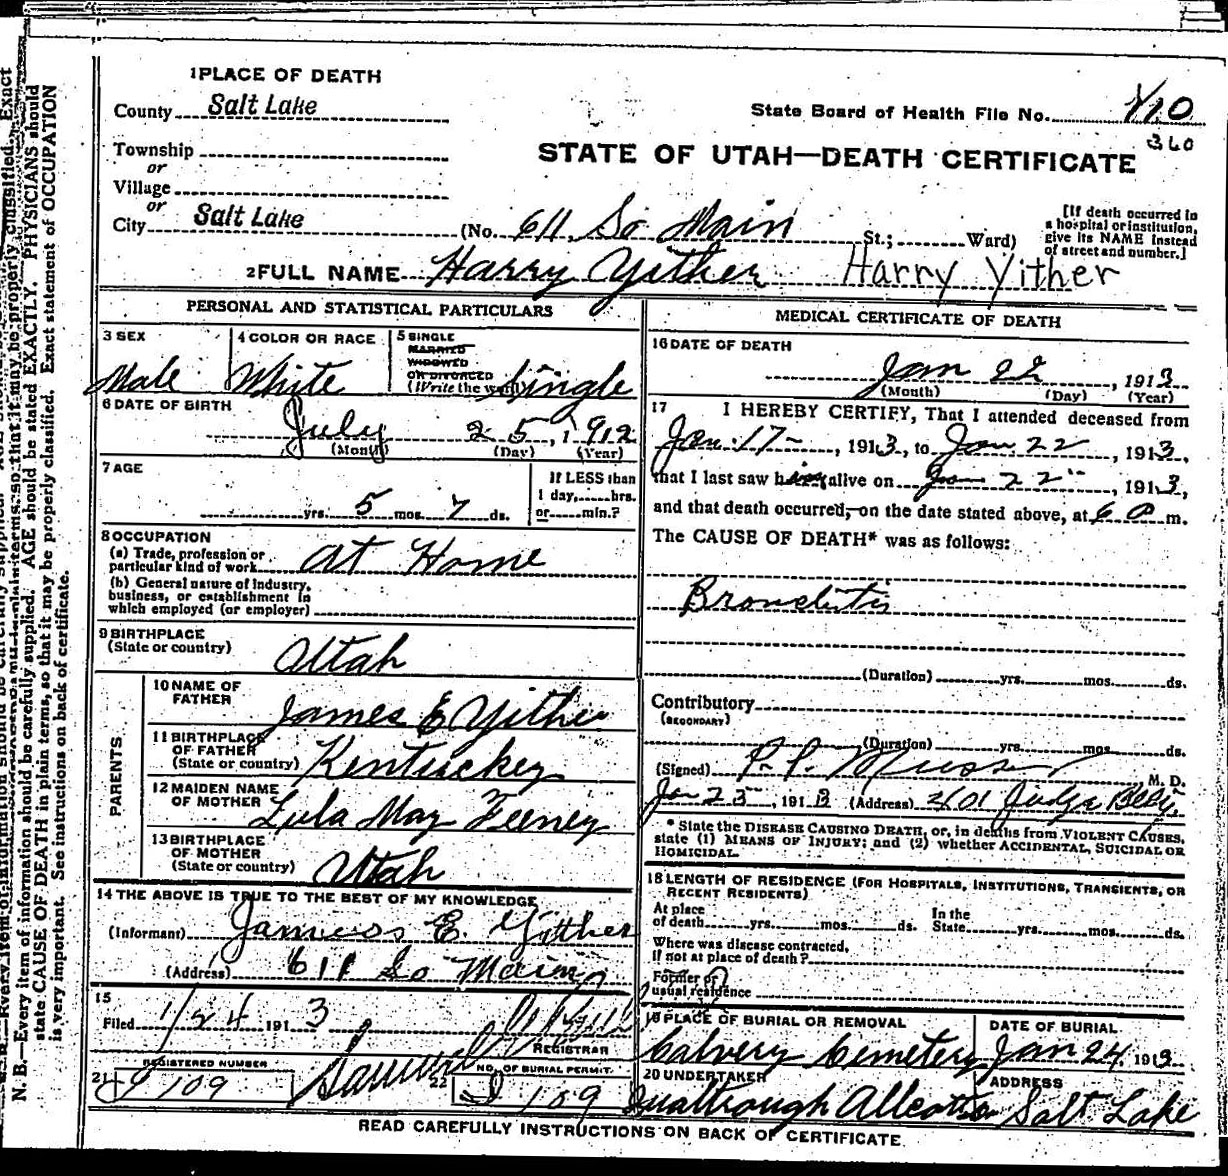 1 PLACE OF DEATH
County Salt Lake
State Board of Health File No. 110
360
Township
or
Village
or
City Salt Lake
STATE OF UTAH—DEATH CERTIFICATE
(No. 611 So Main St.; Ward)
[If death occurred in a hospital or institution, give its NAME instead of street and number.]
2 FULL NAME Harry Yither Harry Yither
PERSONAL AND STATISTICAL PARTICULARS
3 SEX
Male
4 COLOR OR RACE
White
5 SINGLE
MARRIED
WIDOWED
OR DIVORCED
(Write the word) Single
6 DATE OF BIRTH
July 25, 1912
(Month) (Day) (Year)
7 AGE
yrs. 5 mos. 7 ds.
If LESS than
1 day, hrs.
or min.?
8 OCCUPATION
(a) Trade, profession or
particular kind of work at Home
(b) General nature of industry,
business, or establishment in
which employed (or employer)
9 BIRTHPLACE
(State or country) Utah
PARENTS
10 NAME OF
FATHER James E Yither
11 BIRTHPLACE
OF FATHER
(State or country) Kentuckey
12 MAIDEN NAME
OF MOTHER Lula May Feeney
13 BIRTHPLACE
OF MOTHER
(State or country) Utah
14 THE ABOVE IS TRUE TO THE BEST OF MY KNOWLEDGE
(Informant) James E. Yither
(Address) 611 So Main
15
Filed 1/24 1913
REGISTRAR
REGISTERED NUMBER
21 109
22 NO. OF BURIAL PERMIT
109
MEDICAL CERTIFICATE OF DEATH
16 DATE OF DEATH
Jan 22, 1913
(Month) (Day) (Year)
17 I HEREBY CERTIFY, That I attended deceased from
Jan. 17, 1913, to Jan. 22 1913,
that I last saw him alive on Jan 22, 1913,
and that death occurred, on the date stated above, at 6 P m.
The CAUSE OF DEATH* was as follows:
Bronchitis
(Duration) yrs. mos. ds.
Contributory
(SECONDARY)
(Duration) yrs. mos. ds.
(Signed) M. D.
Jan 23, 1913 (Address) 401 Judge Bldg.
* State the DISEASE CAUSING DEATH, or, in deaths from VIOLENT CAUSES,
state (1) MEANS OF INJURY; and (2) whether ACCIDENTAL, SUICIDAL OR
HOMICIDAL.
18 LENGTH OF RESIDENCE (FOR HOSPITALS, INSTITUTIONS, TRANSIENTS, OR
RECENT RESIDENTS)
At place
of death yrs. mos. ds.
In the
State yrs. mos. ds.
Where was disease contracted,
if not at place of death?
Former or
usual residence
19 PLACE OF BURIAL OR REMOVAL
Calvery Cemetery
DATE OF BURIAL.
Jan 24 1913
20 UNDERTAKER
ADDRESS
Salt Lake
READ CAREFULLY INSTRUCTIONS ON BACK OF CERTIFICATE.
N. B.—Every item of information should be carefully supplied. AGE should be stated EXACTLY. PHYSICIANS should
state CAUSE OF DEATH in plain terms, so that it may be properly classified. Exact statement of OCCUPATION
is very important. See instructions on back of certificate.